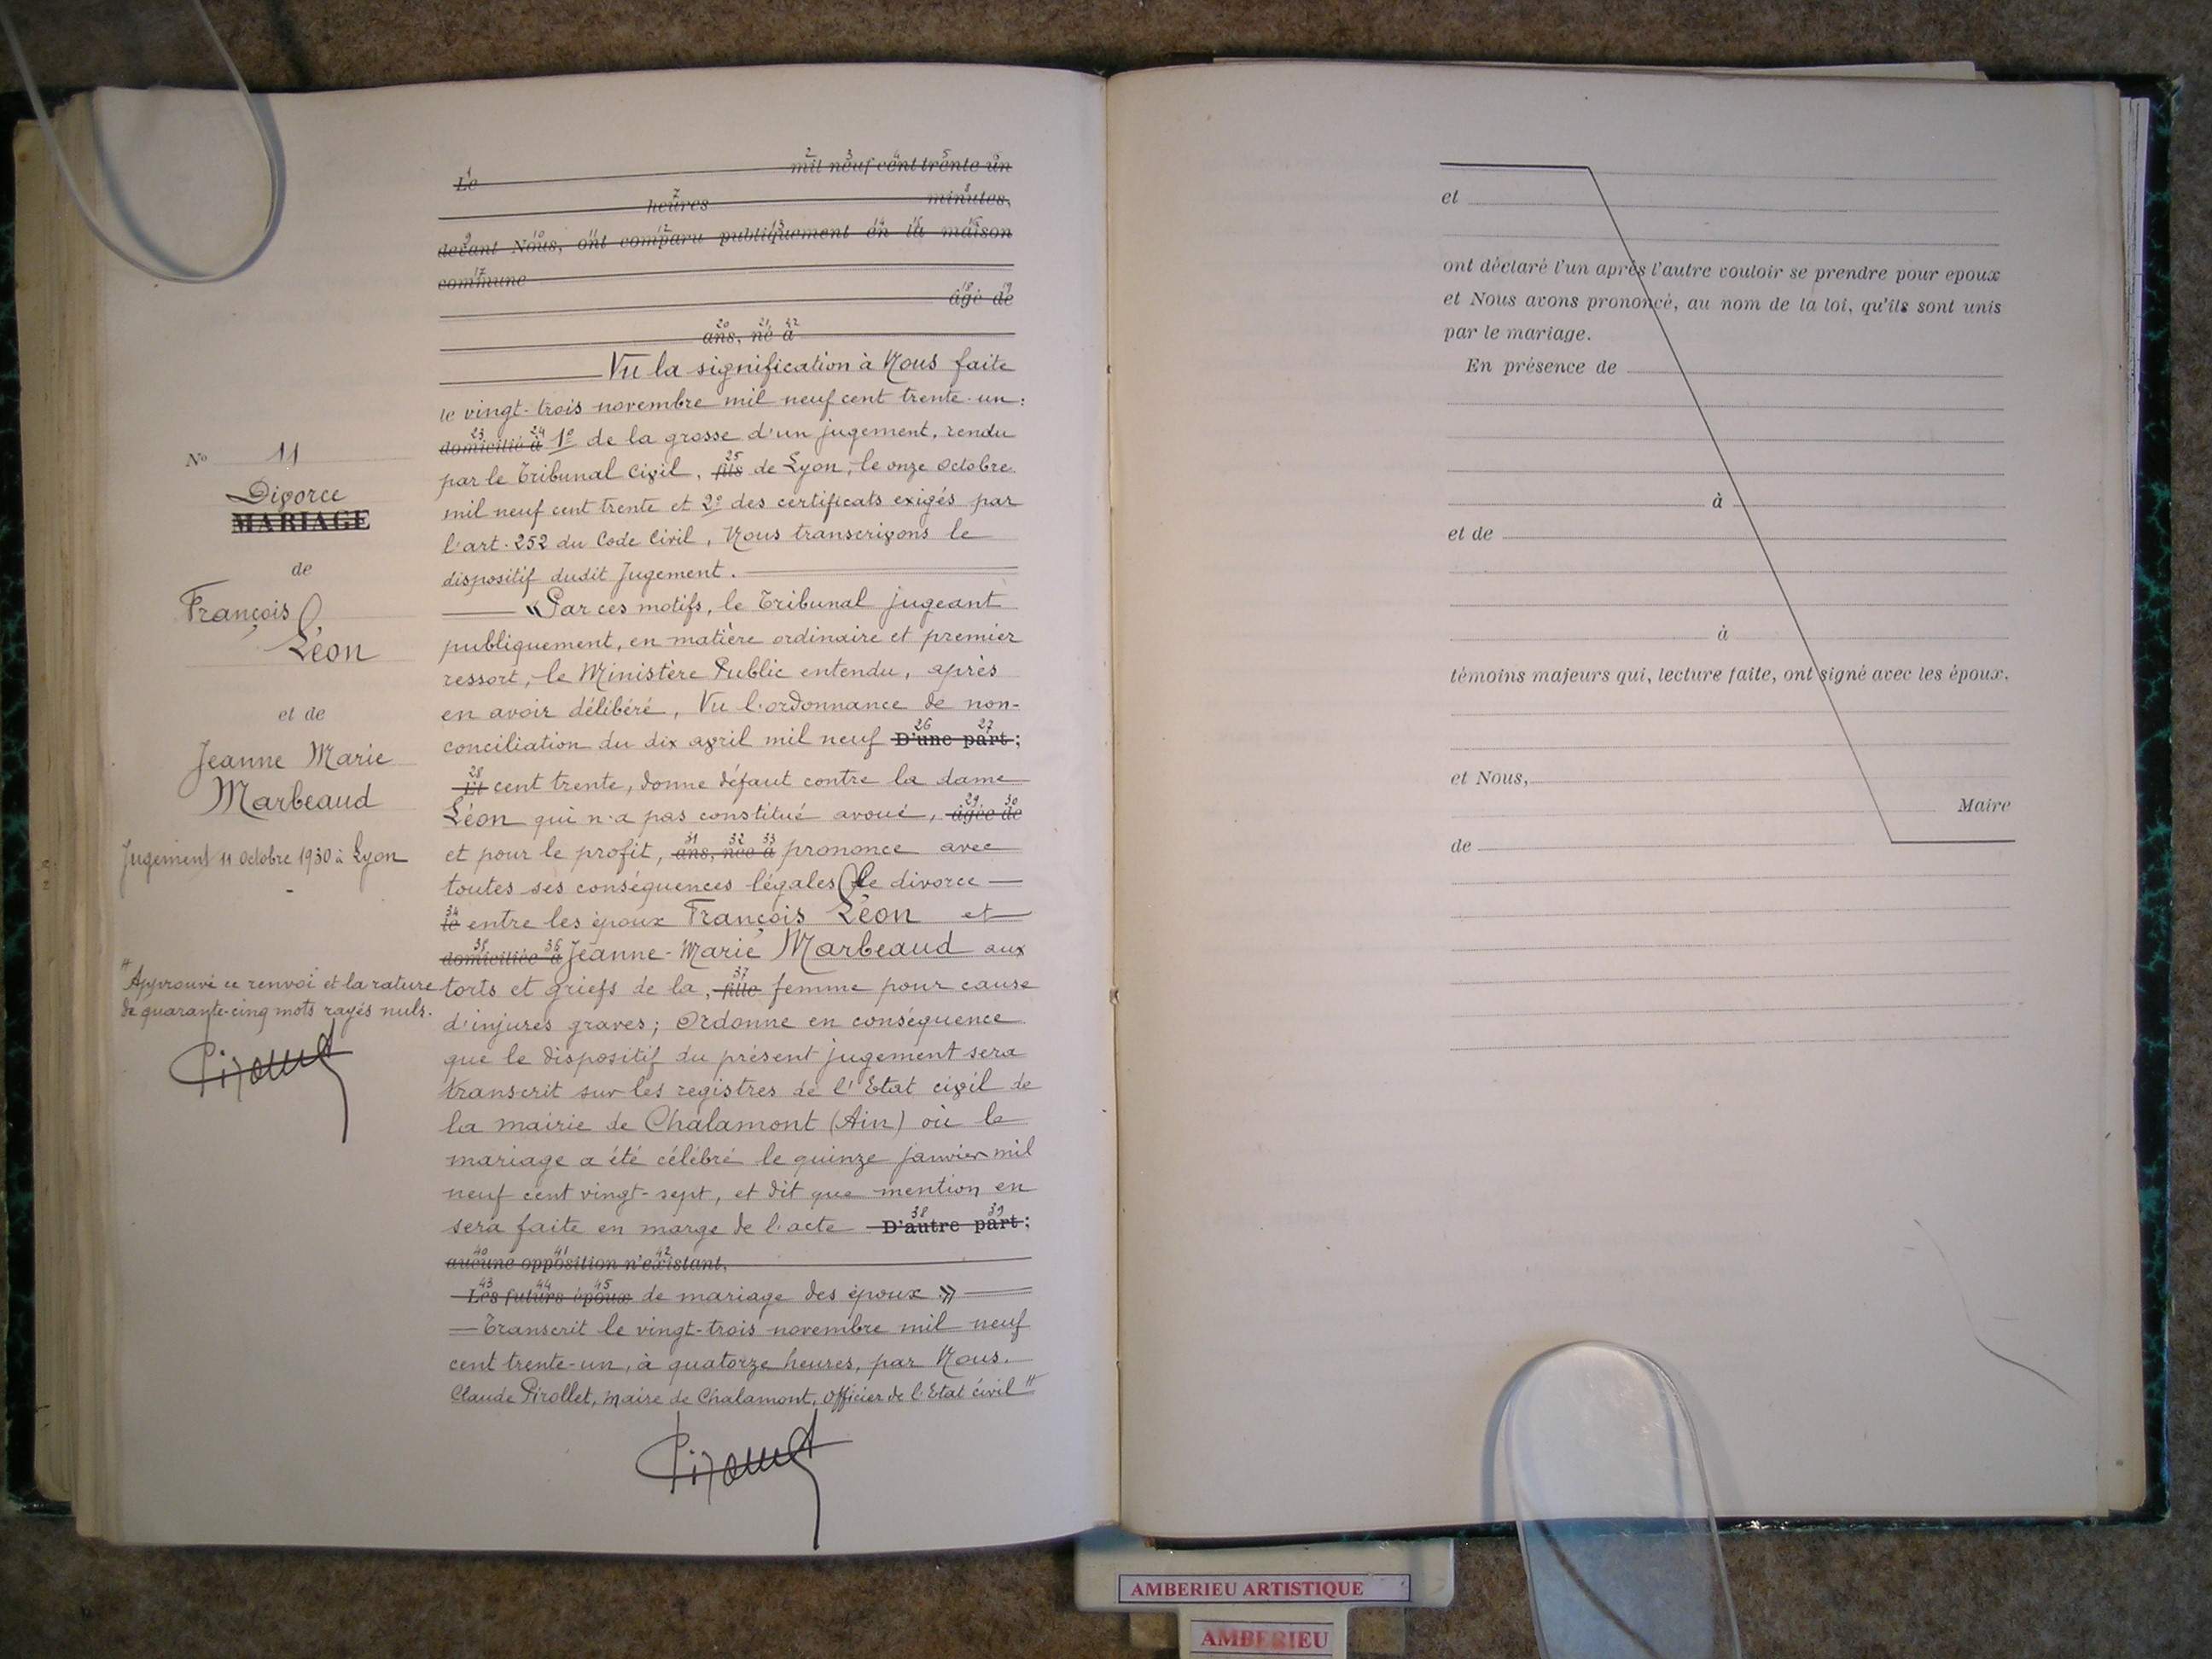 Le mil neuf cent trente un
heures minutes,
devant Nous, ont comparu publiquement en la maison
commune
âgé de
ans, né à
Vu la signification à Nous faite
le vingt-trois novembre mil neuf cent trente-un:
domicilié à 1º de la grosse d'un jugement, rendu
par le Tribunal Civil, fils de Lyon, le onze Octobre
mil neuf cent trente et 2º des certificats exigés par
l'art. 252 du Code Civil, Nous transcrivons le
dispositif dudit Jugement.
«Par ces motifs, le Tribunal jugeant
publiquement, en matière ordinaire et premier
ressort, le Ministère Public entendu, après
en avoir délibéré, Vu l'ordonnance de non-
conciliation du dix avril mil neuf D'une part;
Et cent trente, donne défaut contre la dame
Léon qui n'a pas constitué avoué, âgée de
et pour le profit, ans, née à prononce avec
toutes ses conséquences légales le divorce
le entre les époux François Léon et
domiciliée à Jeanne-Marie Marbeaud aux
torts et griefs de la, fille femme pour cause
d'injures graves; Ordonne en conséquence
que le dispositif du présent jugement sera
transcrit sur les registres de l'Etat civil de
la mairie de Chalamont (Ain) où le
mariage a été célébré le quinze janvier mil
neuf cent vingt-sept, et dit que mention en
sera faite en marge de l'acte D'autre part;
aucune opposition n'existant,
Les futurs époux de mariage des époux.»
Transcrit le vingt-trois novembre mil neuf
cent trente-un, à quatorze heures, par Nous.
Claude Pirollet, Maire de Chalamont, Officier de l'Etat civil "
Nº 11
Divorce
MARIAGE
de
François
Léon
et de
Jeanne Marie
Marbeaud
Jugement 11 Octobre 1930 à Lyon
" Approuvé ce renvoi et la rature
de quarante-cinq mots rayés nuls.
et
ont déclaré l'un après l'autre vouloir se prendre pour epoux
et Nous avons prononcé, au nom de la loi, qu'ils sont unis
par le mariage.
En présence de
à
et de
à
témoins majeurs qui, lecture faite, ont signé avec les époux.
et Nous,
Maire
de
AMBERIEU ARTISTIQUE
AMBERIEU